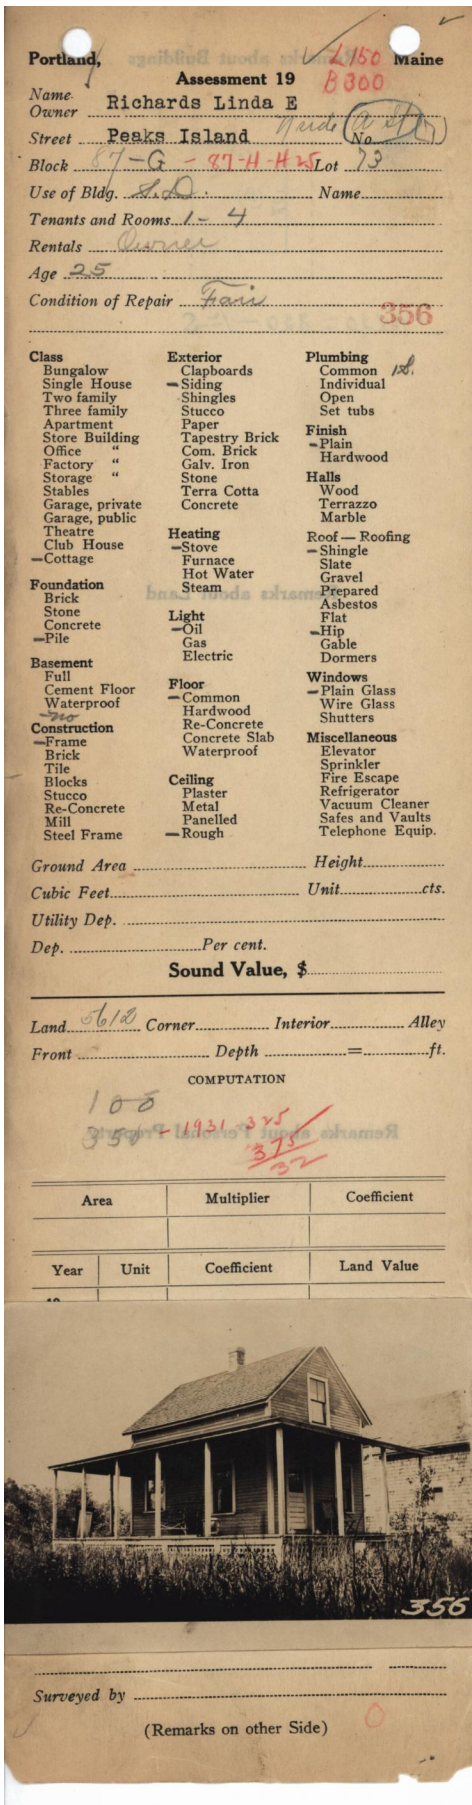 Portland, Maine
L 150
Assessment 19
B 300
Name
Owner Richards Linda E
Street Peaks Island A St No.
Block 87-G - 87-H-H25 Lot 73
Use of Bldg. S.D. Name
Tenants and Rooms 1 - 4
Rentals Owner
Age 25
Condition of Repair Fair
356
Class
Bungalow
Single House
Two family
Three family
Apartment
Store Building
Office "
Factory "
Storage "
Stables
Garage, private
Garage, public
Theatre
Club House
-Cottage
Foundation
Brick
Stone
Concrete
-Pile
Basement
Full
Cement Floor
Waterproof
no
Construction
-Frame
Brick
Tile
Blocks
Stucco
Re-Concrete
Mill
Steel Frame
Exterior
Clapboards
-Siding
Shingles
Stucco
Paper
Tapestry Brick
Com. Brick
Galv. Iron
Stone
Terra Cotta
Concrete
Heating
-Stove
Furnace
Hot Water
Steam
Light
-Oil
Gas
Electric
Floor
-Common
Hardwood
Re-Concrete
Concrete Slab
Waterproof
Ceiling
Plaster
Metal
Panelled
-Rough
Plumbing
Common 1 S.
Individual
Open
Set tubs
Finish
-Plain
Hardwood
Halls
Wood
Terrazzo
Marble
Roof — Roofing
-Shingle
Slate
Gravel
Prepared
Asbestos
Flat
-Hip
Gable
Dormers
Windows
-Plain Glass
Wire Glass
Shutters
Miscellaneous
Elevator
Sprinkler
Fire Escape
Refrigerator
Vacuum Cleaner
Safes and Vaults
Telephone Equip.
Ground Area Height
Cubic Feet Unit cts.
Utility Dep.
Dep. Per cent.
Sound Value, $
Land 5612 Corner Interior Alley
Front Depth = ft.
COMPUTATION
100
350 - 1931 325
375
32
Area Multiplier Coefficient
Year Unit Coefficient Land Value
356
Surveyed by
(Remarks on other Side)
0